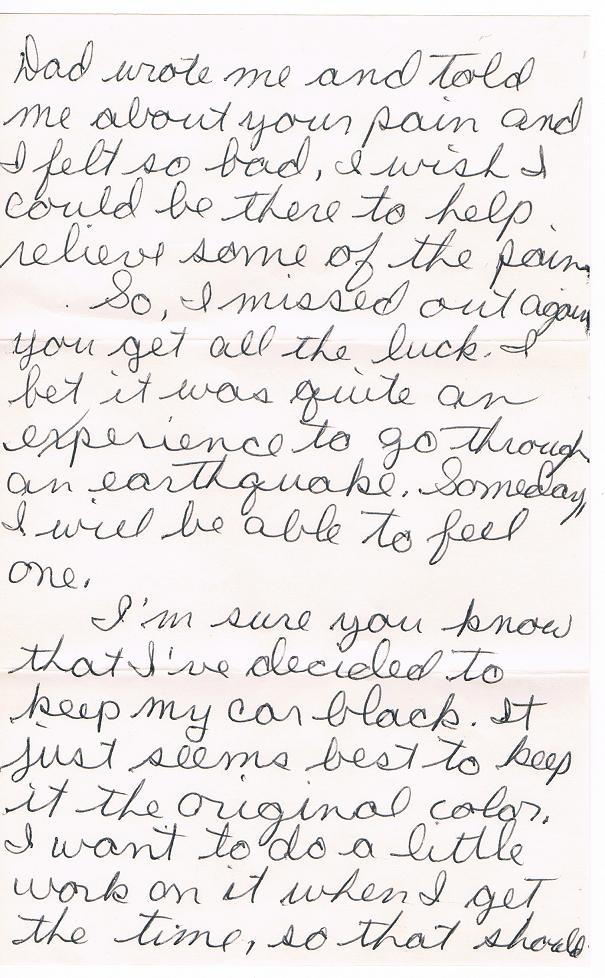 Dad wrote me and told
me about your pain and
I felt so bad, I wish I
could be there to help
relieve some of the pain.
So, I missed out again
you get all the luck. I
bet it was quite an
experience to go through
an earthquake. Someday,
I will be able to feel
one.
I'm sure you know
that I've decided to
keep my car black. It
just seems best to keep
it the original color.
I want to do a little
work on it when I get
the time, so that should